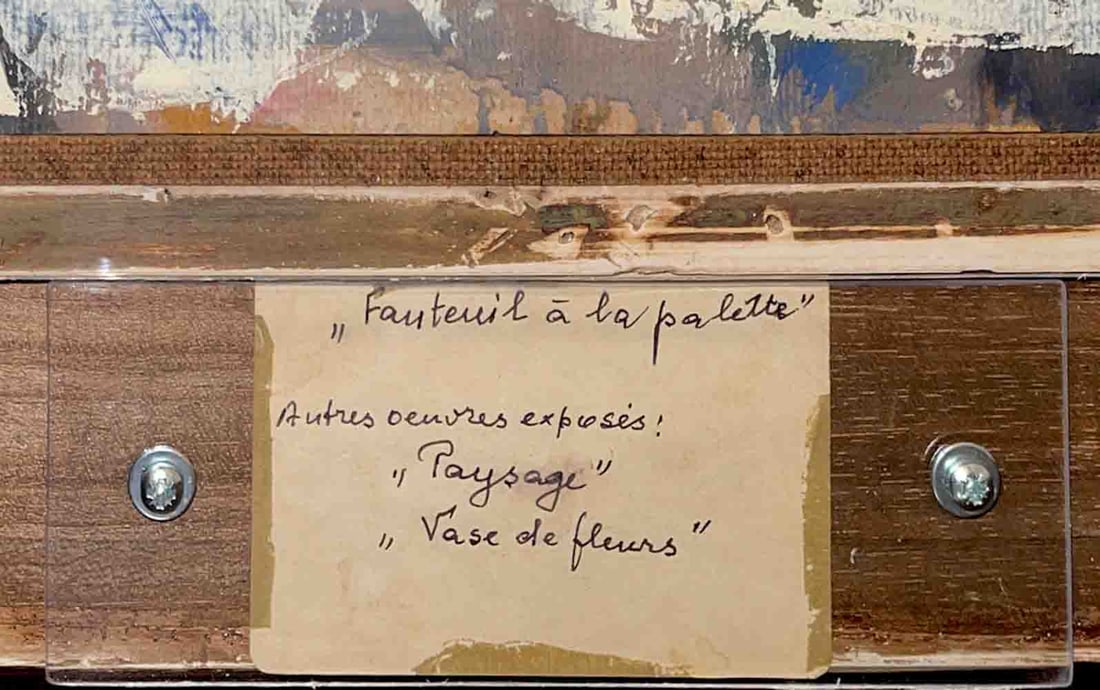 „Fauteuil à la palette”
Autres oeuvres exposés:
„Paysage”
„Vase de fleurs”